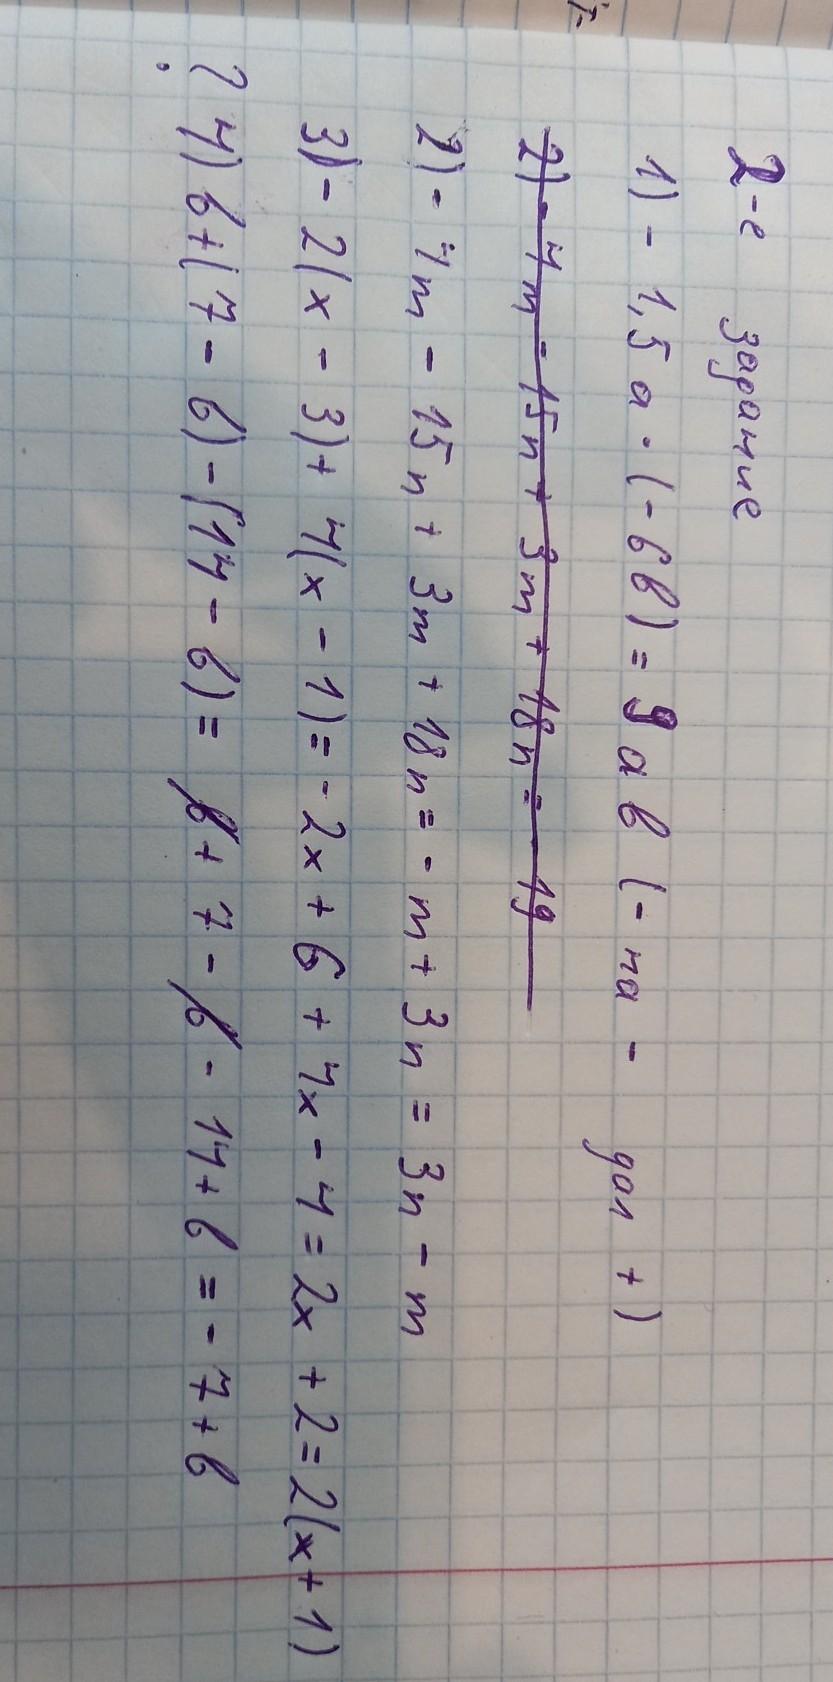 2-е задание
1) - 1,5 а · (- 6в) = 9 а в (- на - дал +)
2) - 4m - 15n + 3m + 18n = - 19
2) - 4m - 15n + 3m + 18n = - m + 3n = 3n - m
3) - 2(x - 3) + 4(x - 1) = - 2x + 6 + 4x - 4 = 2x + 2 = 2(x + 1)
? 4) в + (7 - в) - (14 - в) = в + 7 - в - 14 + в = - 7 + в